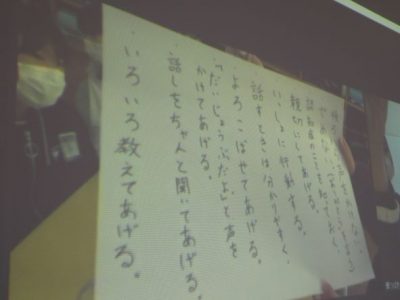 声をかけない。
認知症のことを知っておく。
親切にしてあげる。
・いっしょに行動する。
・話すときは分かりやすく、
・よろこばせてあげる。
・「だいじょうぶだよ」と声を
かけてあげる。
・話しをちゃんと聞いてあげる。
・いろいろ教えてあげる。